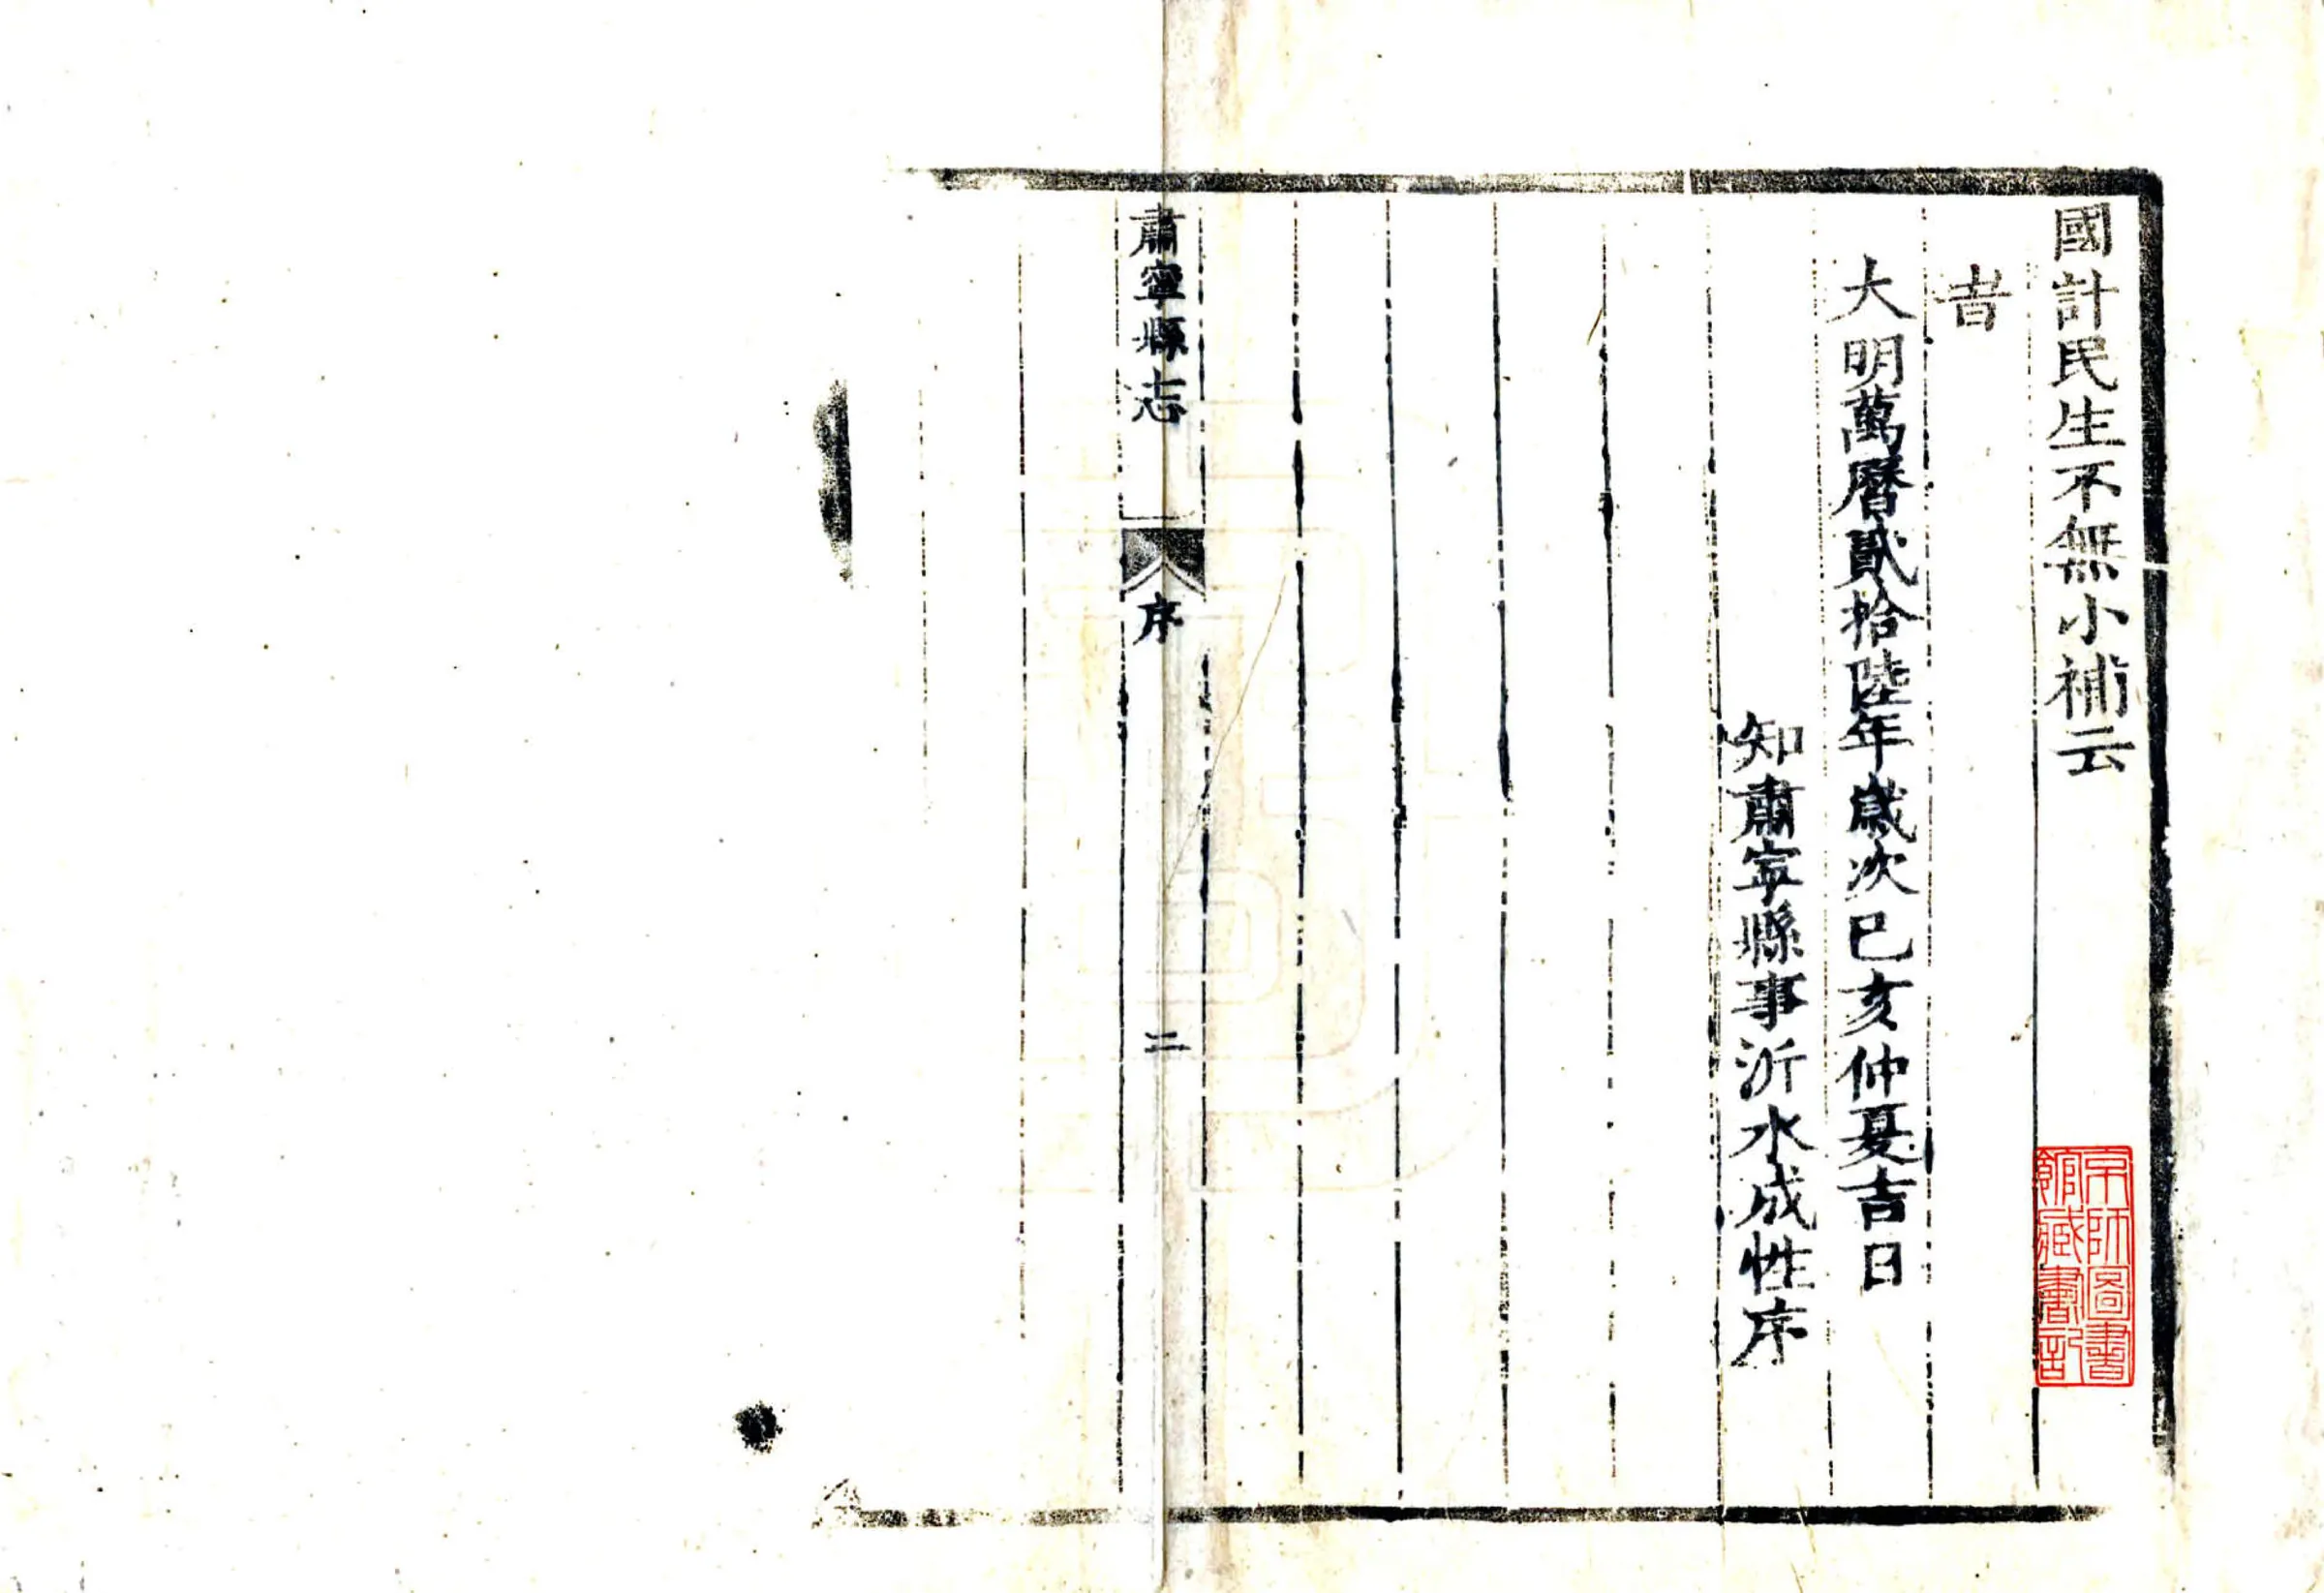 國計民生不無小補云
旹
大明萬曆貳拾陸年歲次巳亥仲夏吉日
知肅寧縣事沂水成性序
肅寧縣志
序
二
京師圖書
館藏書記